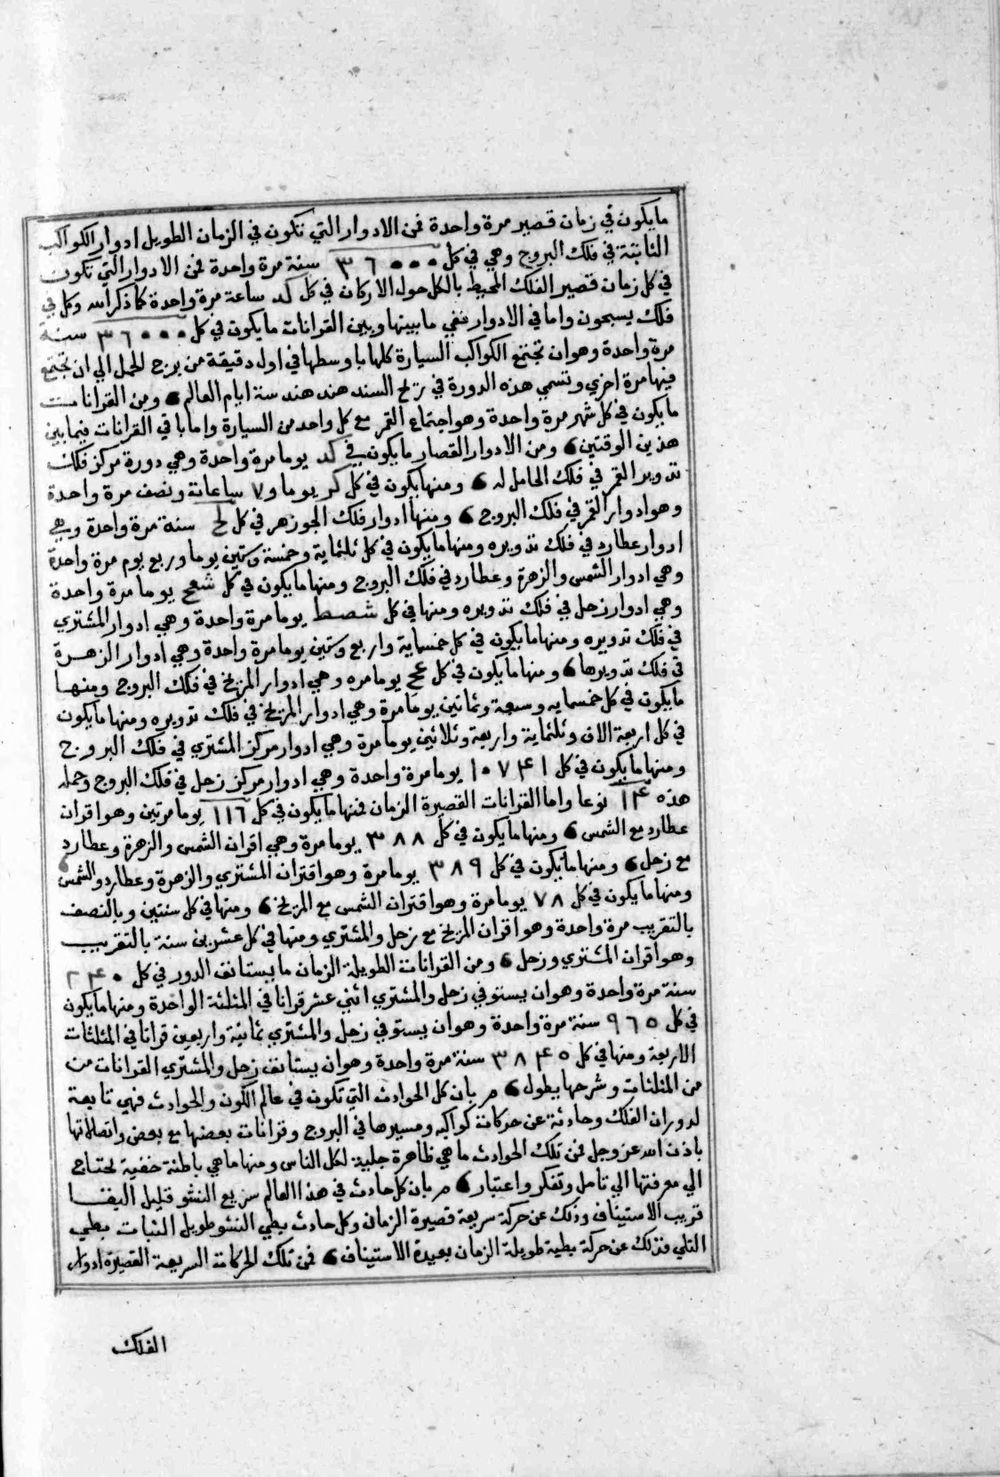 مايكون في زمان قصير مرة واحدة فمن الادوار التي تكون في الزمان الطويل ادوار الكواكب
الثابتة في فلك البروج وهي في كل ٣٦٠٠٠ سنة مرة واحدة فمن الادوار التي تكون
في كل زمان قصير الفلك المحيط بالكل حول الاركان في كل كد ساعة مرة واحدة كما ذكر الله وكل في
فلك يسبحون واما في الادوار ففي ما بينها وبين القرانات مايكون في كل ٣٦٠٠٠٠ سنة
مرة واحدة وهو ان تجتمع الكواكب السيارة كلها باوسطها في اول دقيقة من برج الحمل الي ان تجتمع
فيها مرة اخري وتسمي هذه الدورة في زيج السند هند هند سة ايام العالم ومن القرانات
مايكون في كل شهر مرة واحدة وهو اجتماع القمر مع كل واحد من السيارة واما باقي القرانات فيما بين
هذين الوقتين ومن الادوار القصار مايكون في كد يوما مرة واحدة وهي دورة مركز فلك
تدوير القمر في فلك الحامل له ومنها يكون في كل كز يوما و٧ ساعات ونصف مرة واحدة
وهو ادوار القمر في فلك البروج ومنها ادوار فلك الجوزهر في كل لح سنة مرة واحدة وهي
ادوار عطارد في فلك تدويره ومنها مايكون في كل ثلثماية وخمسة وستين يوما وربع يوم مرة واحدة
وهي ادوار الشمس والزهرة وعطارد في فلك البروج ومنها مايكون في كل شعح يوما مرة واحدة
وهي ادوار زحل في فلك تدويره ومنها في كل شصط يوما مرة واحدة وهي ادوار المشتري
في فلك تدويره ومنها مايكون في كل خمسماية واربع وستين يوما مرة واحدة وهي ادوار الزهرة
في فلك تدويرها ومنها مايكون في كل عح يوما مره وهي ادوار المريخ في فلك البروج ومنها
مايكون في كل خمسمايه وسبعة وثمانين يوما مرة وهي ادوار المريخ في فلك تدويره ومنها مايكون
في كل اربعة الاف وثلثماية واربعة وثلاثين يوما مرة وهي ادوار مركز المشتري في فلك البروج
ومنها مايكون في كل ١٠٧٤١ يوما مرة واحدة وهي ادوار مركز زحل في فلك البروج وجمله
هذه ١٤ نوعا واما القرانات القصيرة الزمان فمنها مايكون في كل ١١٦ يوما مرتين وهو اقران
عطارد مع الشمس ومنها مايكون في كل ٣٨٨ يوما مرة وهي اقران الشمس والزهرة وعطارد
مع زحل ومنها مايكون في كل ٣٨٩ يوما مرة وهو اقتران المشتري والزهرة وعطارد والشمس
ومنها مايكون في كل ٧٨ يوما مرة وهو اقتران الشمس مع المريخ ومنها في كل سنتين وبالنصف
بالتقريب مرة واحدة وهو اقران المريخ مع زحل والمشتري ومنها في كل عشرين سنة بالتقريب
وهو اقران المشتري وزحل ومن القرانات الطويلة الزمان ما يستانف الدور في كل ٢٤٠
سنة مرة واحدة وهو ان يستوفي زحل والمشتري اثني عشر قرانا في المثلثة الواحدة ومنها مايكون
في كل ٩٦٥ سنة مرة واحدة وهو ان يستوفي زحل والمشتري ثمانية واربعين قرانا في المثلثات
الاربعة ومنها في كل ٣٨٤٥ سنة مرة واحدة وهو ان يستانف زحل والمشتري القرانات من
من المثلثات وشرحها يطول بان كل الحوادث التي تكون في عالم الكون والحوادث فهي تابعة
لدوران الفلك وحادثة عن حركات كواكبه ومسيرها في البروج وقرانات بعضها مع بعض واتصالاتها
باذن الله عز وجل فمن تلك الحوادث ما هي ظاهرة جلية لكل الناس ومنها ما هي باطنة خفية تحتاج
الي معرفتها الي تامل وتفكر واعتبار بان كل حادث في هذا العالم سريع النشو قليل البقا
قريب الاستيناف وذلك عن حركة سريعة قصيرة الزمان وكل حادث بطي النشو طويل الثبات بطي
البلي فذلك عن حركة بطية طويلة الزمان بعيدة الاستيناف فمن تلك الحركات السريعة القصيرة ادوار
الفلك